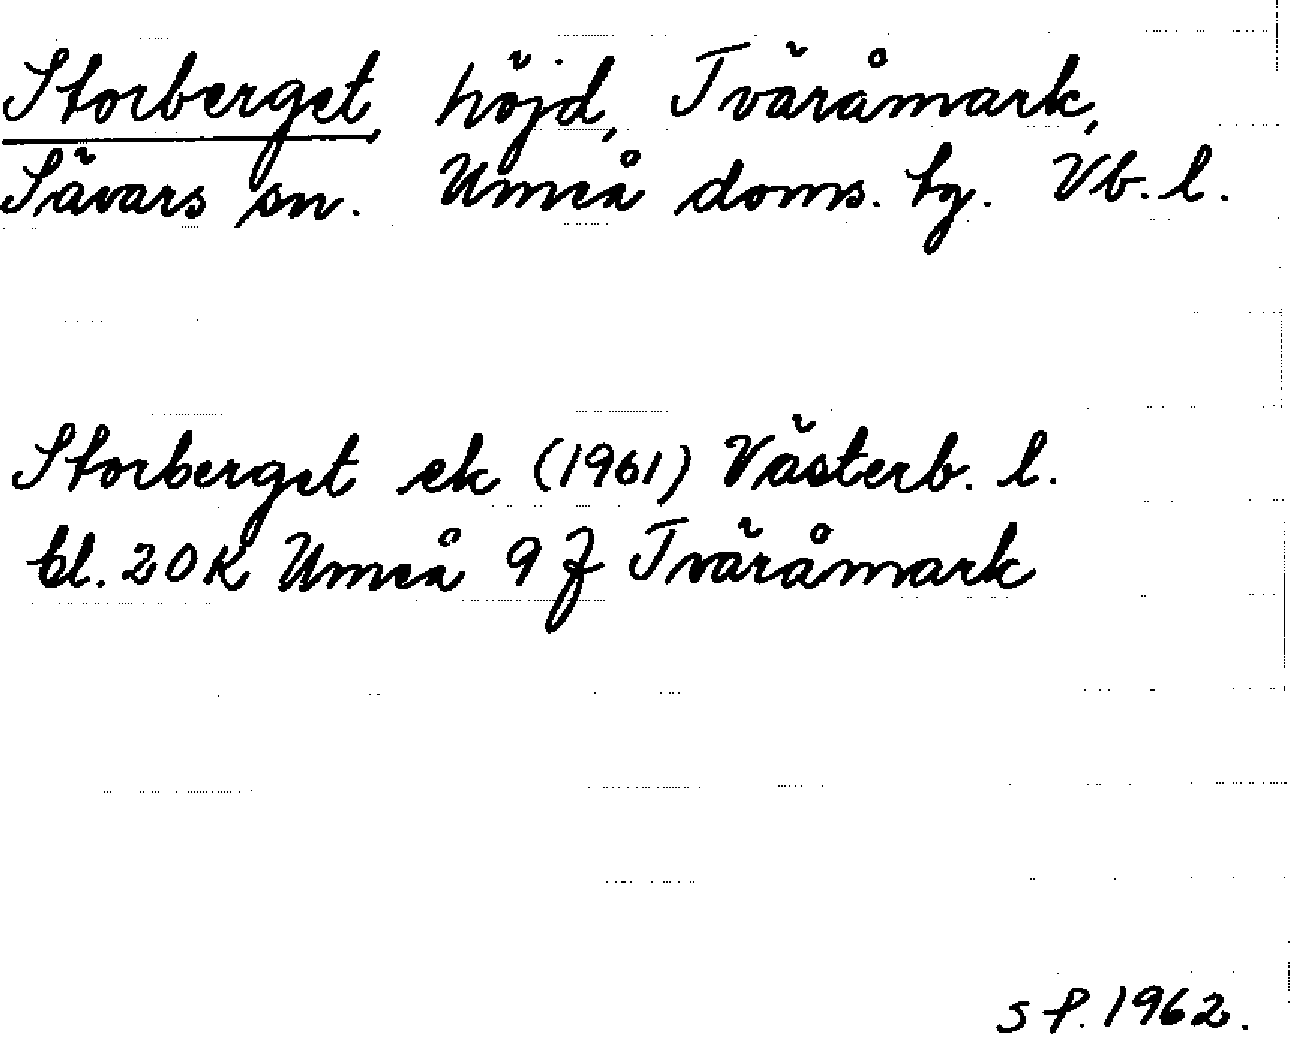 Storberget, höjd, Tväråmark,
Sävars sn. Umeå doms. tg. Vb. l.
Storberget ek (1961) Västerb. l.
bl. 20 K Umeå 9 f Tväråmark
SP. 1962.